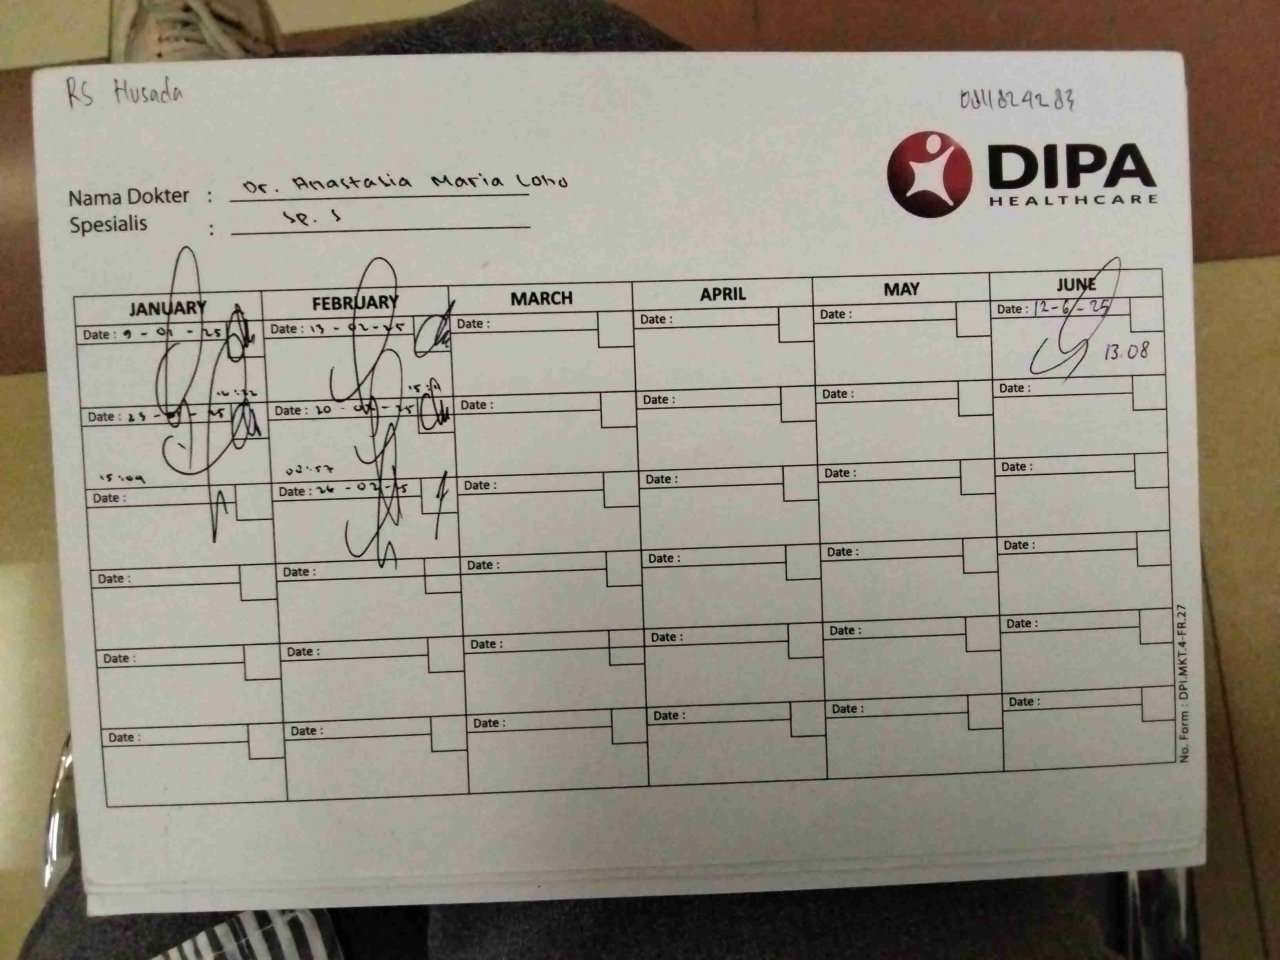 RS Husada
0811824283
DIPA
HEALTHCARE
Nama Dokter : Dr. Anastasia Maria Loho
Spesialis : Sp. S
JANUARY FEBRUARY MARCH APRIL MAY JUNE
Date : 9 - 01 - 25 Date : 13 - 02 - 25 Date : Date : Date : Date : 12-6-25
13.08
Date : 23 - 01 - 25 Date : 20 - 02 - 25 Date : Date : Date : Date :
15:09
Date : Date : 26 - 02 - 25 Date : Date : Date : Date :
Date : Date : Date : Date : Date : Date :
Date : Date : Date : Date : Date : Date :
Date : Date : Date : Date : Date : Date :
No. Form : DPI.MKT.4-FR.27